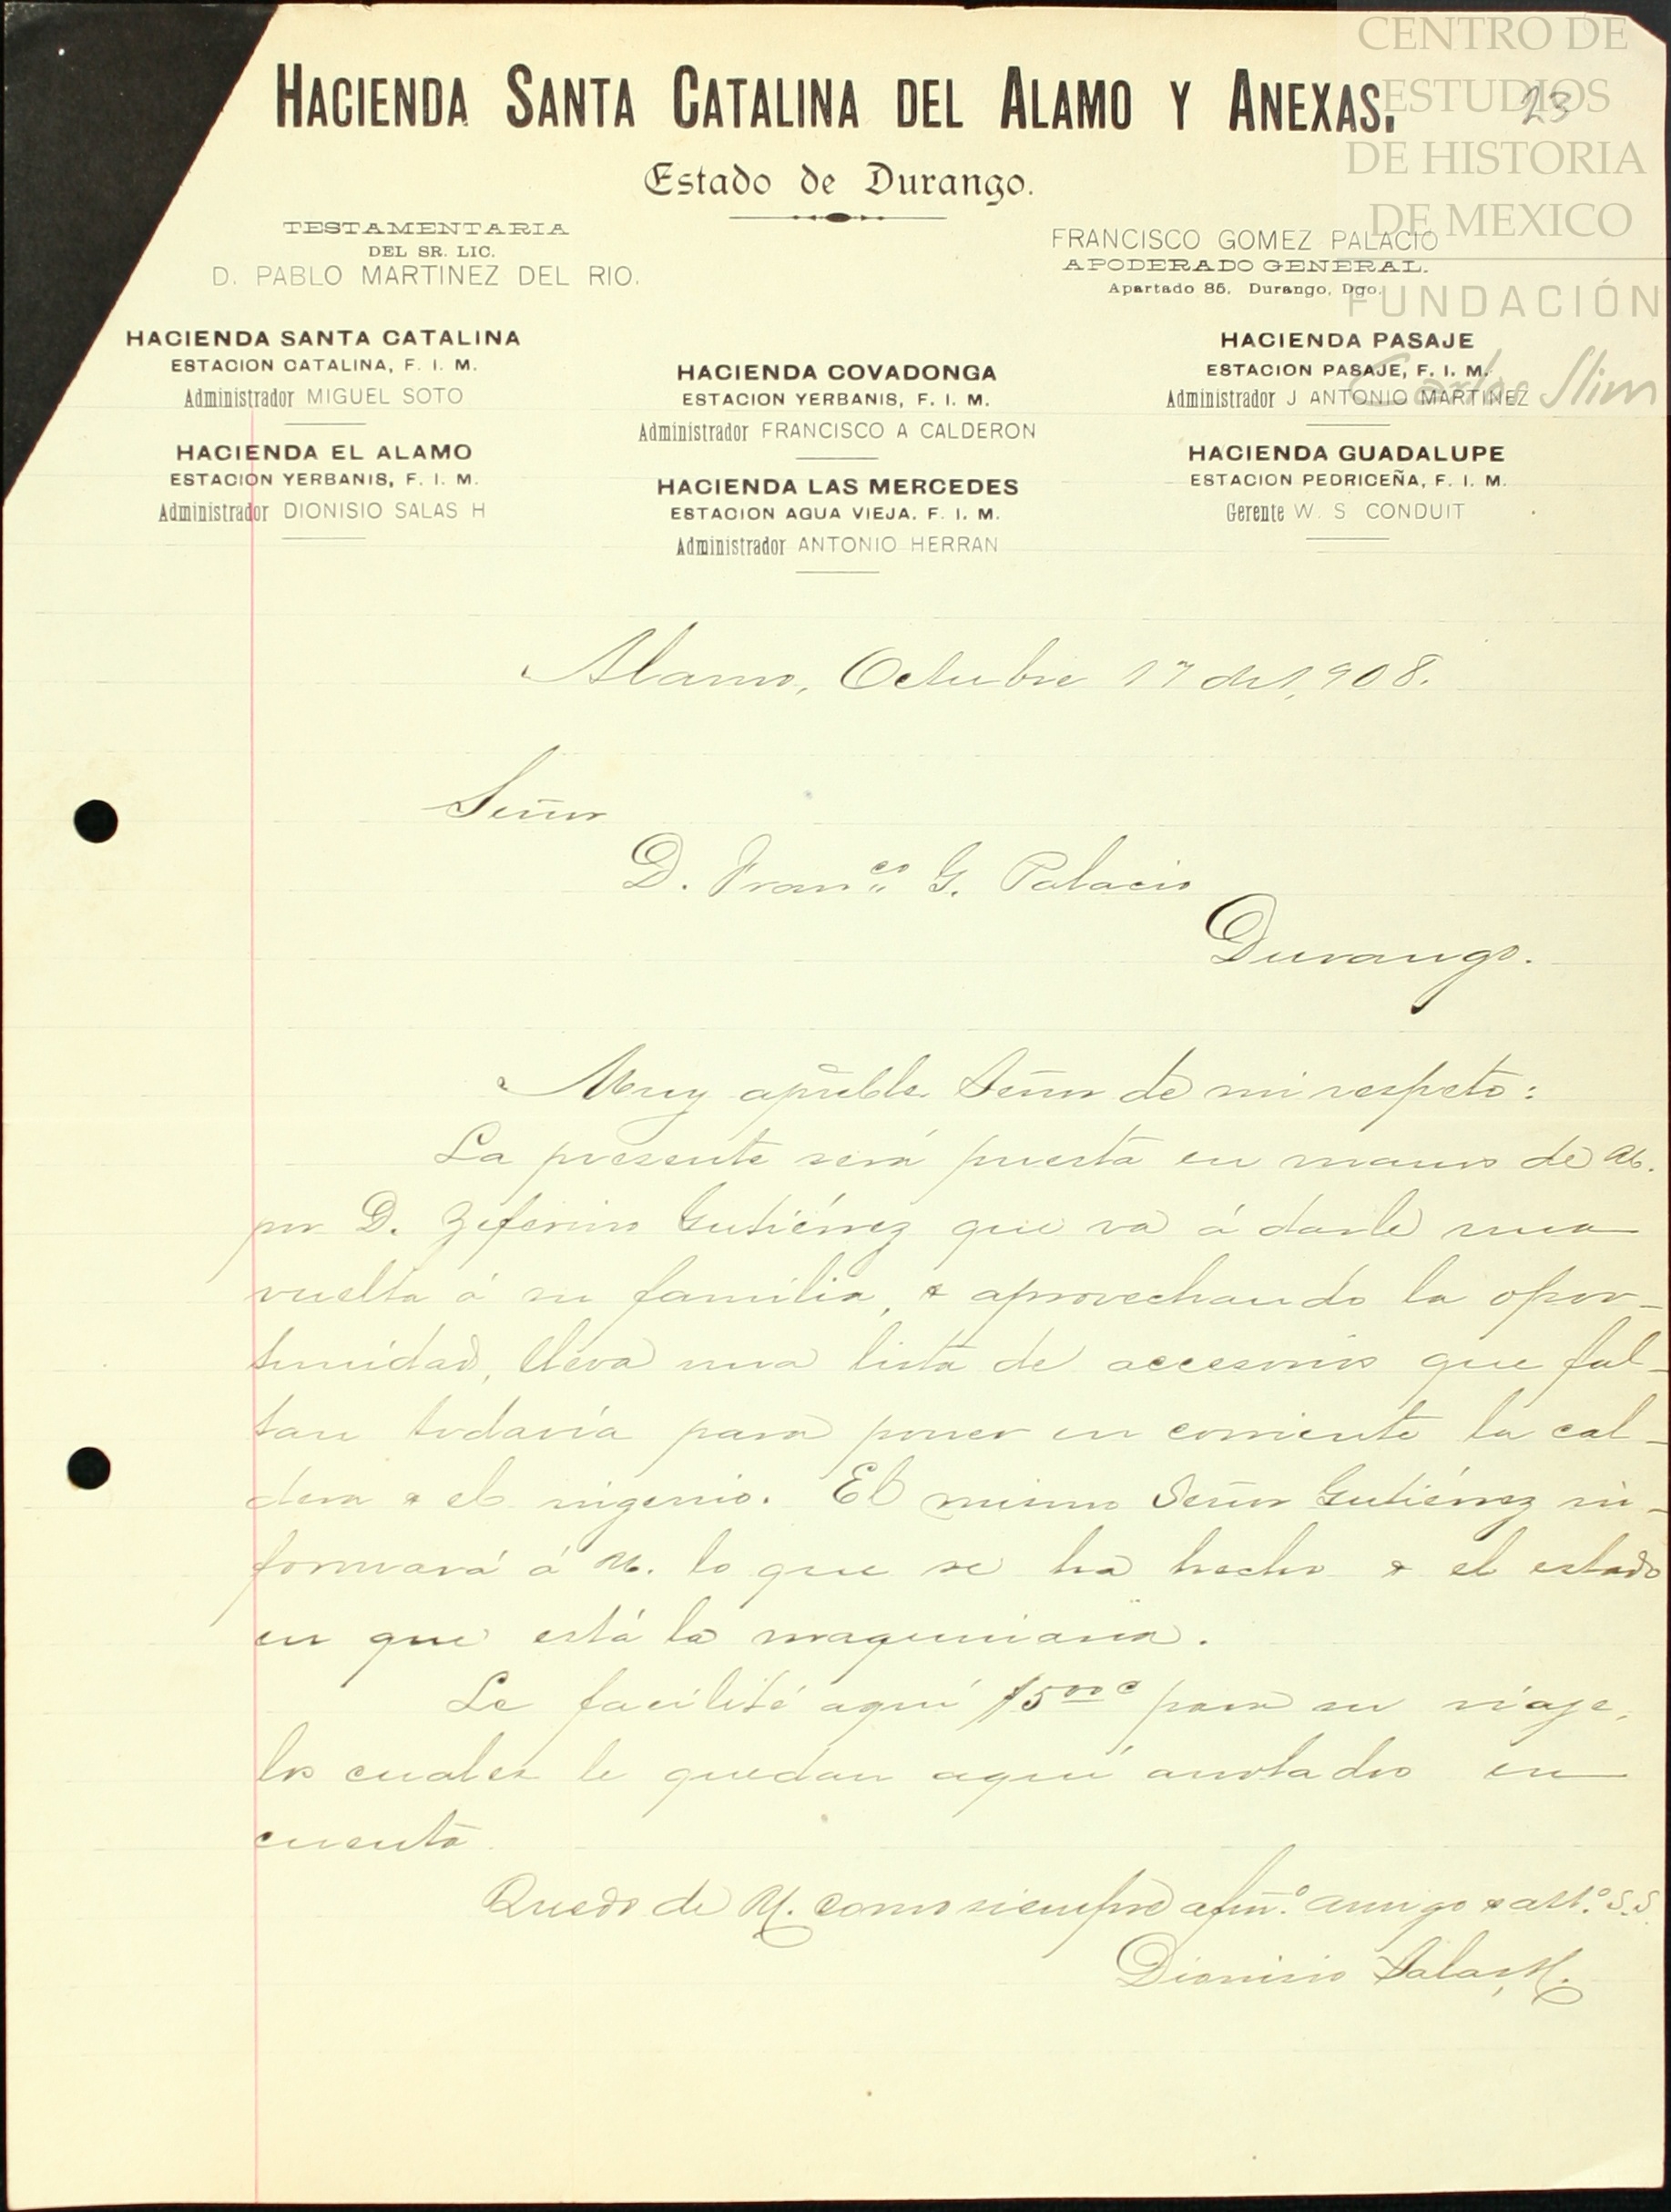 HACIENDA SANTA CATALINA DEL ALAMO Y ANEXAS.
23
Estado de Durango.
CENTRO DE
ESTUDIOS
DE HISTORIA
DE MEXICO
FUNDACIÓN
Carlos Slim
TESTAMENTARIA
DEL SR. LIC.
D. PABLO MARTINEZ DEL RIO.
FRANCISCO GOMEZ PALACIO
APODERADO GENERAL.
Apartado 85, Durango, Dgo.
HACIENDA SANTA CATALINA
ESTACION CATALINA, F. I. M.
Administrador MIGUEL SOTO
HACIENDA EL ALAMO
ESTACION YERBANIS, F. I. M.
Administrador DIONISIO SALAS H
HACIENDA COVADONGA
ESTACION YERBANIS, F. I. M.
Administrador FRANCISCO A CALDERON
HACIENDA LAS MERCEDES
ESTACION AGUA VIEJA. F. I. M.
Administrador ANTONIO HERRAN
HACIENDA PASAJE
ESTACION PASAJE, F. I. M.
Administrador J ANTONIO MARTINEZ
HACIENDA GUADALUPE
ESTACION PEDRICEÑA, F. I. M.
Gerente W. S CONDUIT
Alamo, Octubre 17 de 1,908.
Señor
D. Fran.co G. Palacio
Durango.
Muy apreble Señor de mi respeto:
La presente será puesta en manos de U.
por D. Zeferino Gutiérrez que va á darle una
vuelta á su familia, & aprovechando la opor-
tunidad, lleva una lista de accesorios que fal-
tan todavía para poner en corriente la cal-
dera & el ingenio. El mismo Señor Gutiérrez in-
formará á U. lo que se ha hecho & el estado
en que está la maquinaria.
Le facilité aquí $5.00 c para su viaje,
los cuales le quedan aquí anotados en
cuenta.
Quedo de U. como siempre afmo. amigo & atto. S.S.
Dionisio Salas H.